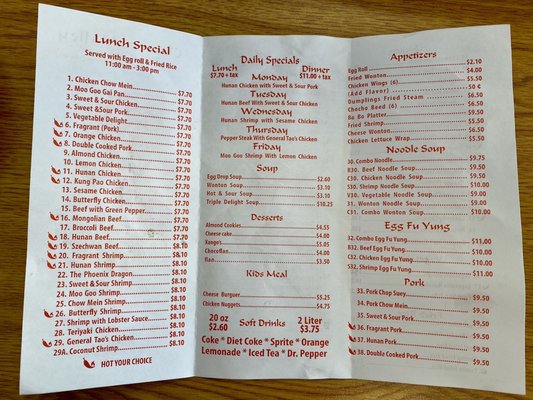 Lunch Special
Served with Egg roll & Fried Rice
11:00 am - 3:00 pm
1. Chicken Chow Mein $7.70
2. Moo Goo Gai Pan $7.70
3. Sweet & Sour Chicken $7.70
4. Sweet &Sour Pork $7.70
5. Vegetable Delight $7.70
6. Fragrant (Pork) $7.70
7. Orange Chicken $7.70
8. Double Cooked Pork $7.70
9. Almond Chicken $7.70
10. Lemon Chicken $7.70
11. Hunan Chicken $7.70
12. Kung Pao Chicken $7.70
13. Sesame Chicken $7.70
14. Butterfly Chicken $7.70
15. Beef with Green Pepper $7.70
16. Mongolian Beef $7.70
17. Broccoli Beef $7.70
18. Hunan Beef $7.70
19. Szechwan Beef $8.10
20. Fragrant Shrimp $8.10
21. Hunan Shrimp $8.10
22. The Phoenix Dragon $8.10
23. Sweet & Sour Shrimp $8.10
24. Moo Goo Shrimp $8.10
25. Chow Mein Shrimp $8.10
26. Butterfly Shrimp $8.10
27. Shrimp with Lobster Sauce $8.10
28. Teriyaki Chicken $8.10
29. General Tao's Chicken $8.10
29A. Coconut Shrimp $8.10
HOT YOUR CHOICE
Daily Specials
Lunch Dinner
$7.70 + tax $11.00 + tax
Monday
Hunan Chicken with Sweet & Sour Pork
Tuesday
Hunan Beef With Sweet & Sour Chicken
Wednesday
Hunan Shrimp with Sesame Chicken
Thursday
Pepper Steak With General Tao's Chicken
Friday
Moo Goo Shrimp With Lemon Chicken
Soup
Egg Drop Soup $2.60
Wonton Soup $3.10
Hot & Sour Soup $3.10
Triple Delight Soup $10.25
Desserts
Almond Cookies $4.55
Cheese cake $4.00
Xango's $5.05
Chocoflan $4.00
flan $3.50
Kids Meal
Cheese Burguer $5.25
Chicken Nuggets $4.75
20 oz Soft Drinks 2 Liter
$2.60 $3.75
Coke * Diet Coke * Sprite * Orange
Lemonade * Iced Tea * Dr. Pepper
Appetizers
Egg Roll $2.10
Fried Wonton $4.00
Chicken Wings (6) $5.50
(Add Flavor) 50 ¢
Dumplings Fried Steam $6.50
Chocho Beed (6) $6.50
Bo Bo Platter $9.50
Fried Shrimp $5.50
Cheese Wonton $6.50
Chicken Lettuce Wrap $5.50
Noodle Soup
30. Combo Noodle $9.75
B30. Beef Noodle Soup $9.50
C30. Chicken Noodle Soup $9.50
S30. Shrimp Noodle Soup $10.00
V30. Vegetable Noodle Soup $9.00
31. Wonton Noodle Soup $9.00
C31. Combo Wonton Soup $10.00
Egg Fu Yung
32. Combo Egg Fu Yung $11.00
B32. Beef Egg Fu Yung $10.00
C32. Chicken Egg Fu Yung $10.00
S32. Shrimp Egg Fu Yung $11.00
Pork
33. Pork Chop Suey $9.50
34. Pork Chow Mein $9.50
35. Sweet & Sour Pork $9.50
36. Fragrant Pork $9.50
37. Hunan Pork $9.50
38. Double Cooked Pork $9.50